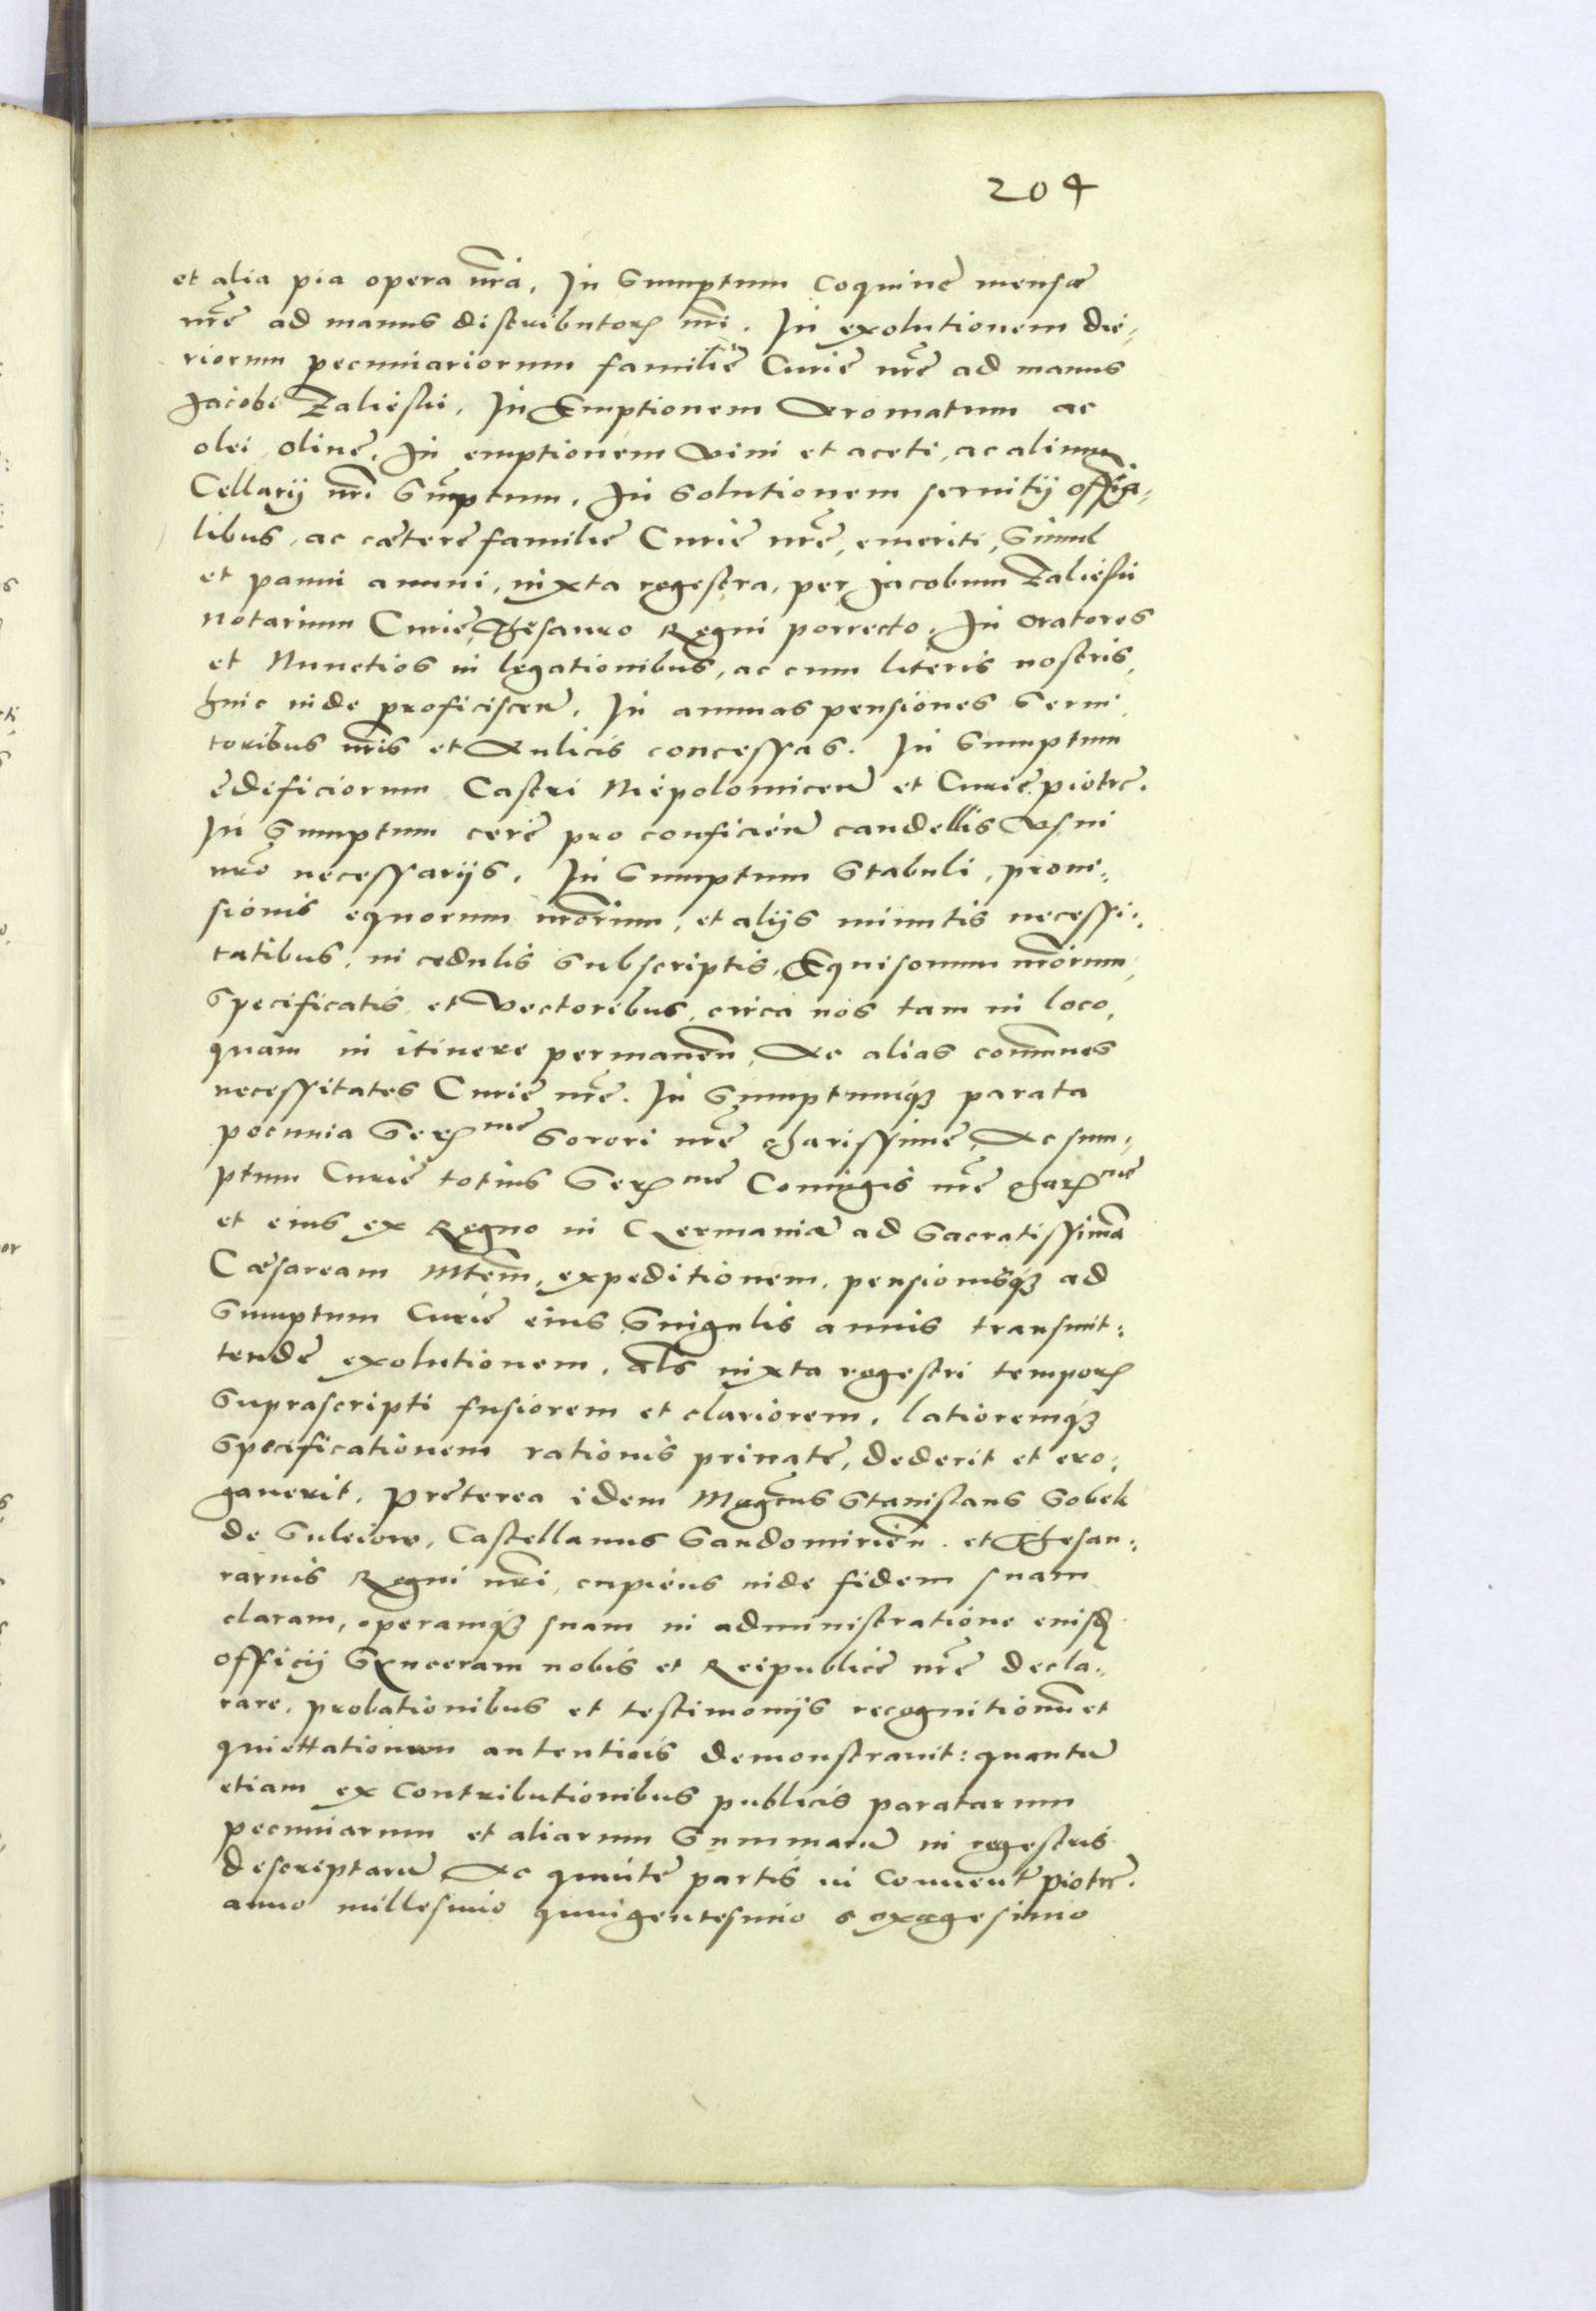 204
et alia pia opera nrã. In Sumptum Coquinę mensæ
nrę ad manus distributor nri. In exolutionem die,
riorum pecuniariorum familię Curię nrę ad manus
Jacobi Zalieski. In Emptionem Aromatum ac
olei olivę. In emptionem Vini et aceti, ac alium
Cellarij nri Sumptum. In Solutionem servitij officia,
libus, ac cæterę familię Curię nrę, emeriti, Simul
et panni annui, iuxta regestra, per Jacobum Zalieski
notarium Curię, Thesauro Regni porrecto. In Oratores
et Nunctios in legationibus, ac cum literis nostris,
huic inde proficiscen. In annuas pensiones Servi,
toribus nris et Aulicis concessas. In Sumptum
ędificiorum Castri Niepolomicen et Curię piotrc.
In Sumptum cerę pro conficien candellis Usui
nro necessarijs. In Sumptum Stabuli, provi,
sionis equorum nrorum, et alijs minutis necessi,
tatibus, in cedulis subscriptis, Equisonum nrorum,
Specificatis, et Vectoribus, circa nos tam in loco,
quam in itinere permanen, Ac alias comunes
necessitates Curię nrę. In Sumptumq; parata
pecunia Ser me Sorori nrę charissimę, Ac sum,
ptum Curię totius Ser me Coniugis nrę char me
et eius ex Regno in Germaniã ad Sacratissimã
Cæsaream Mtem, expeditionem, pensionisq; ad
Sumptum Curię eius Singulis annis transmit:
tendę exolutionem. als iuxta regestri tempor
Suprascripti fusiorem et clariorem, latioremq;
Specificationem rationis privatę, dederit et ero,
gaverit. Pręterea idem Magcus Stanislaus Sobek
de Suleiow, Castellanus Sandomirien. et Thesau:
rarius Regni nri, cupiens inde fidem suam
claram, operamq; suam in administratione eiusd
officij Synceram nobis et Reipublicę nrę decla,
rare, probationibus et testimonijs recognitionũ et
quiettationum autenticis demonstravit: quantũ
etiam ex Contributionibus publicis paratarum
pecuniarum et aliarum Summarũ in regestris
descriptarũ, Ac quintę partis in Conuentu piotrc.
anno millesimo quingentesimo sexagesimo